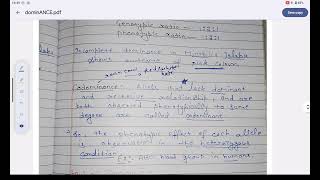 dominANCE.pdf
Genotypic ratio - 1:2:1
phenotypic ratio - 1:2:1
Incomplete dominance in Mirabilis Jalapa
pink colour
Codominance: Alleles that lack dominant
and recessive relationship and are
both observed phenotypically to some
degree are called codominant
So, the phenotypic effect of each allele
is observable in the heterozygous
condition.
Ex: ABO blood group in humans.